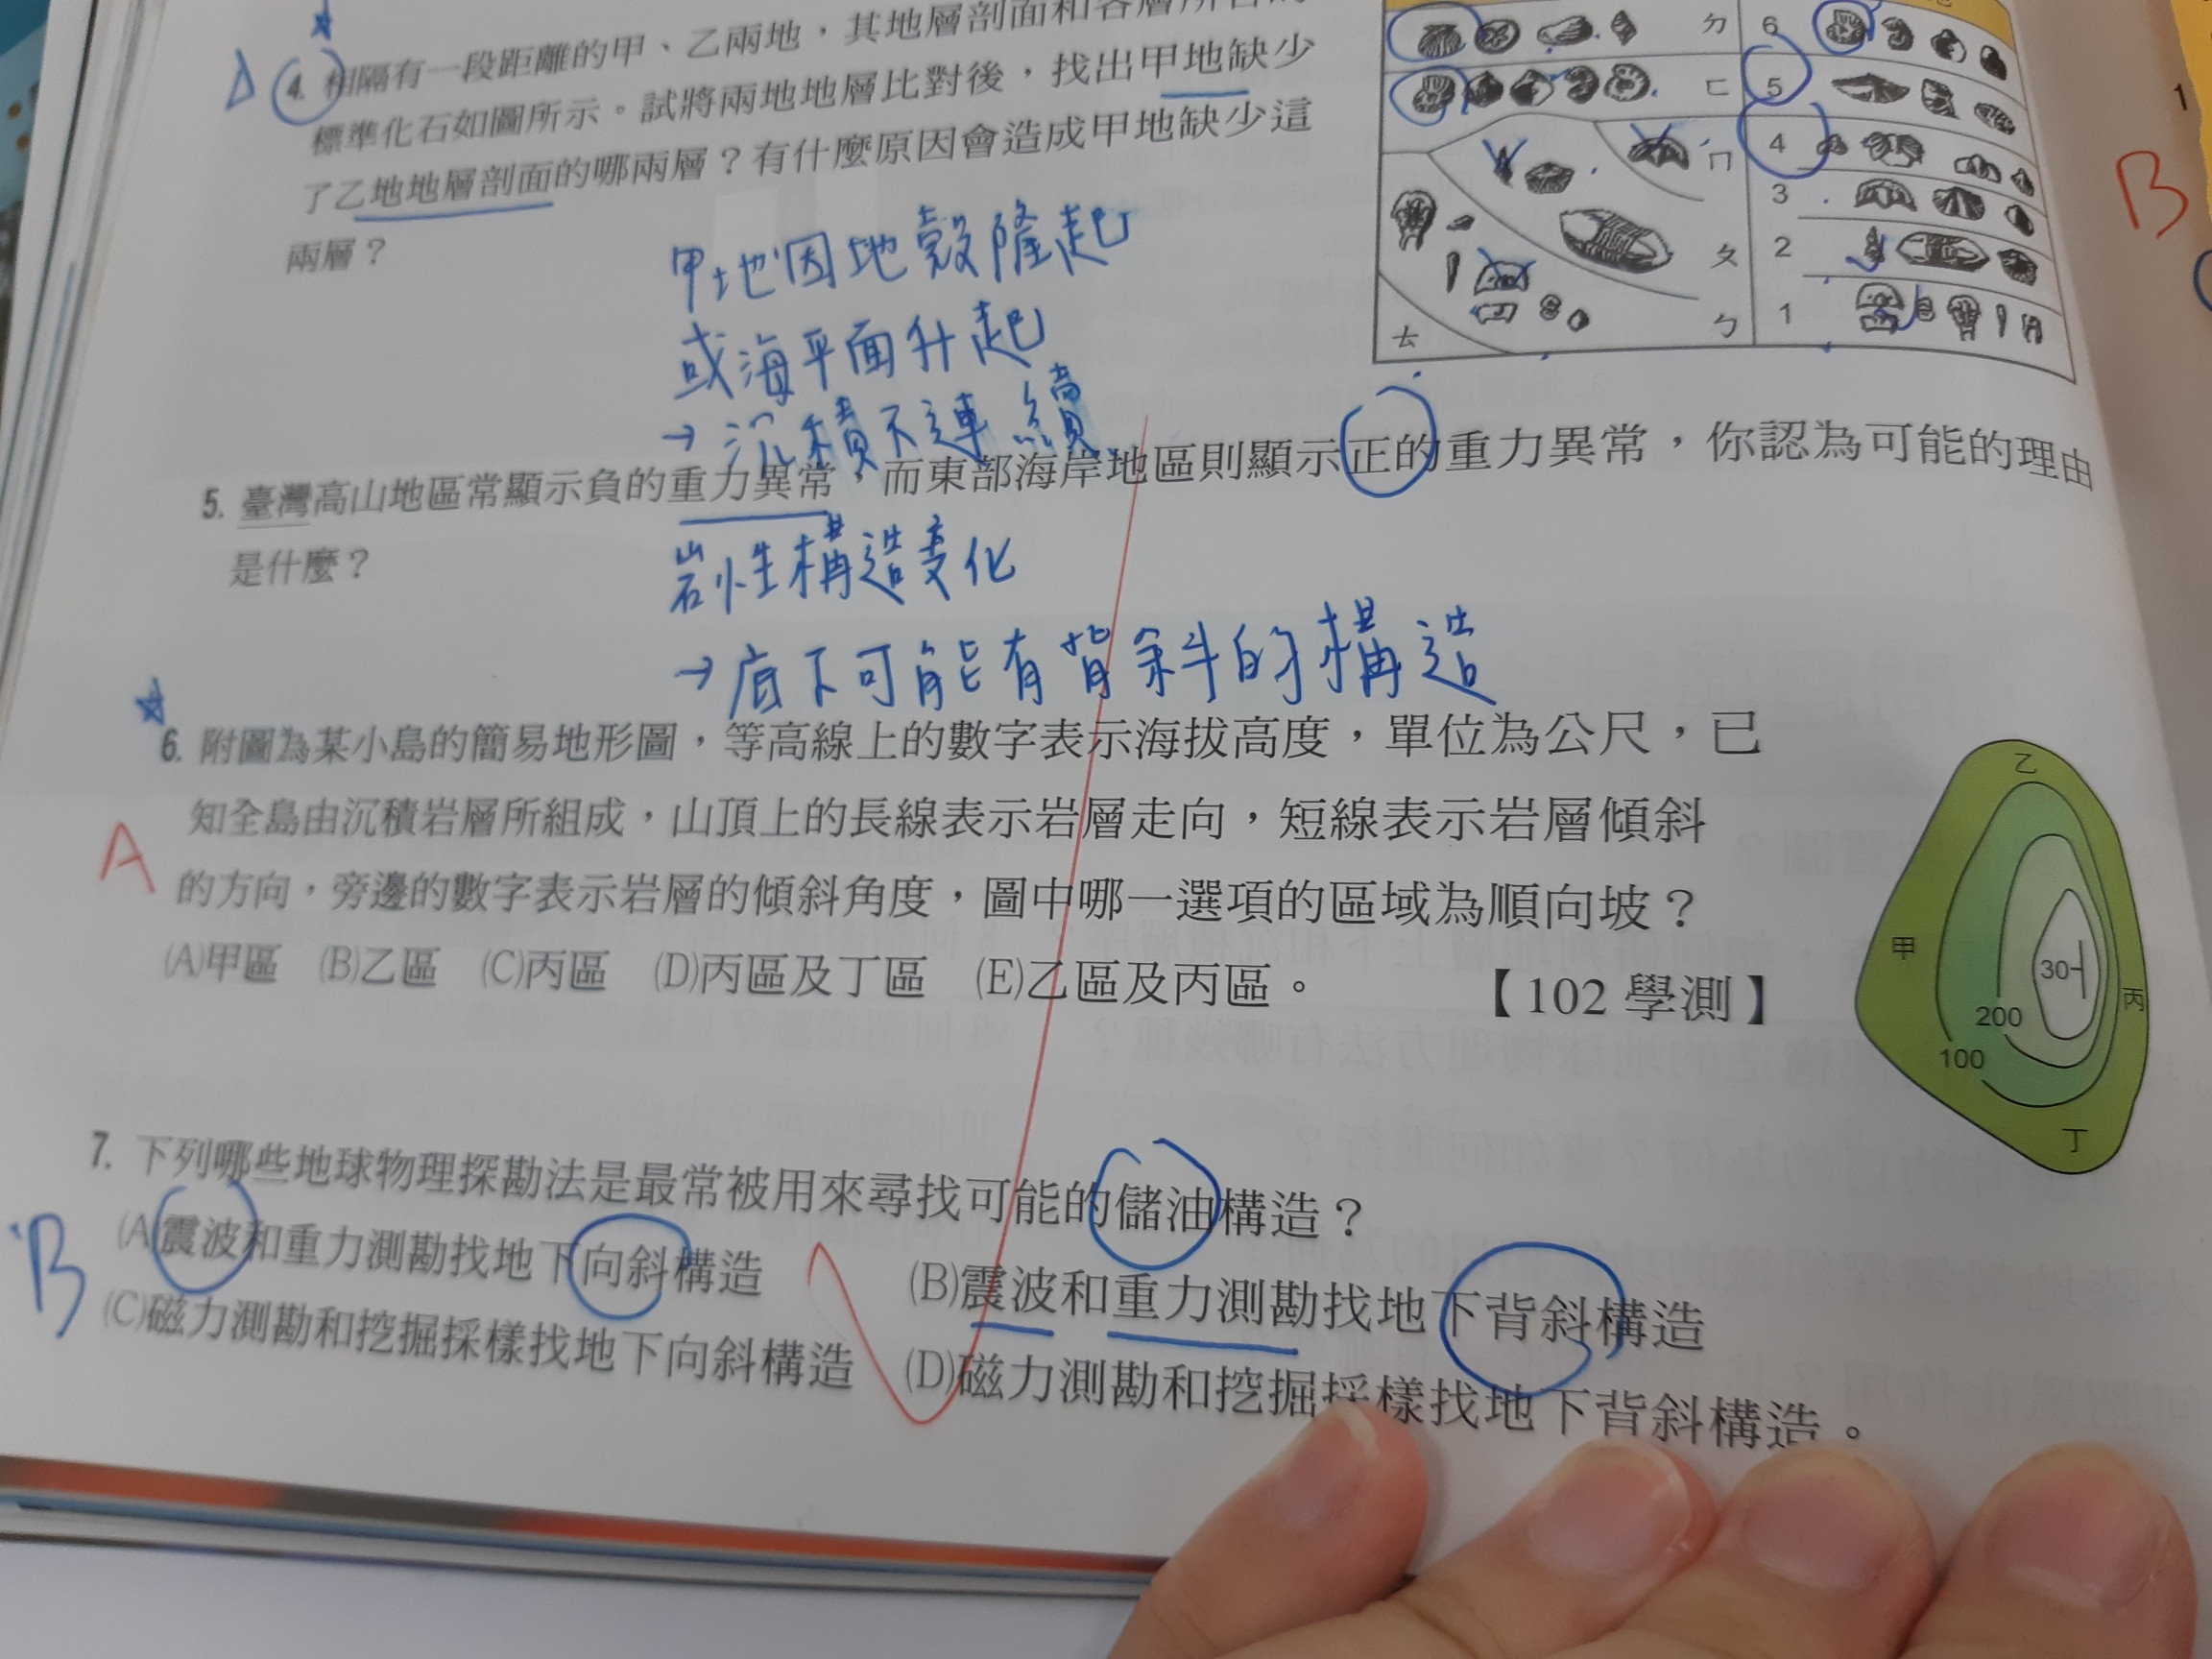 4. 相隔有一段距離的甲、乙兩地，其地層剖面和各層所含的
標準化石如圖所示。試將兩地地層比對後，找出甲地缺少
了乙地地層剖面的哪兩層？有什麼原因會造成甲地缺少這
兩層？
甲地因地殼隆起
或海平面升起
→沉積不連續
ㄉ
ㄈ
ㄇ
ㄆ
ㄅ
ㄊ
6
5
4
3
2
1
1
B
5. 臺灣高山地區常顯示負的重力異常，而東部海岸地區則顯示正的重力異常，你認為可能的理由
是什麼？
岩性構造變化
→底下可能有背斜的構造
A
6. 附圖為某小島的簡易地形圖，等高線上的數字表示海拔高度，單位為公尺，已
知全島由沉積岩層所組成，山頂上的長線表示岩層走向，短線表示岩層傾斜
的方向，旁邊的數字表示岩層的傾斜角度，圖中哪一選項的區域為順向坡？
(A)甲區 (B)乙區 (C)丙區 (D)丙區及丁區 (E)乙區及丙區。
【102 學測】
乙
甲
30
丙
200
100
丁
B
7. 下列哪些地球物理探勘法是最常被用來尋找可能的儲油構造？
(A)震波和重力測勘找地下向斜構造 (B)震波和重力測勘找地下背斜構造
(C)磁力測勘和挖掘採樣找地下向斜構造 (D)磁力測勘和挖掘採樣找地下背斜構造。